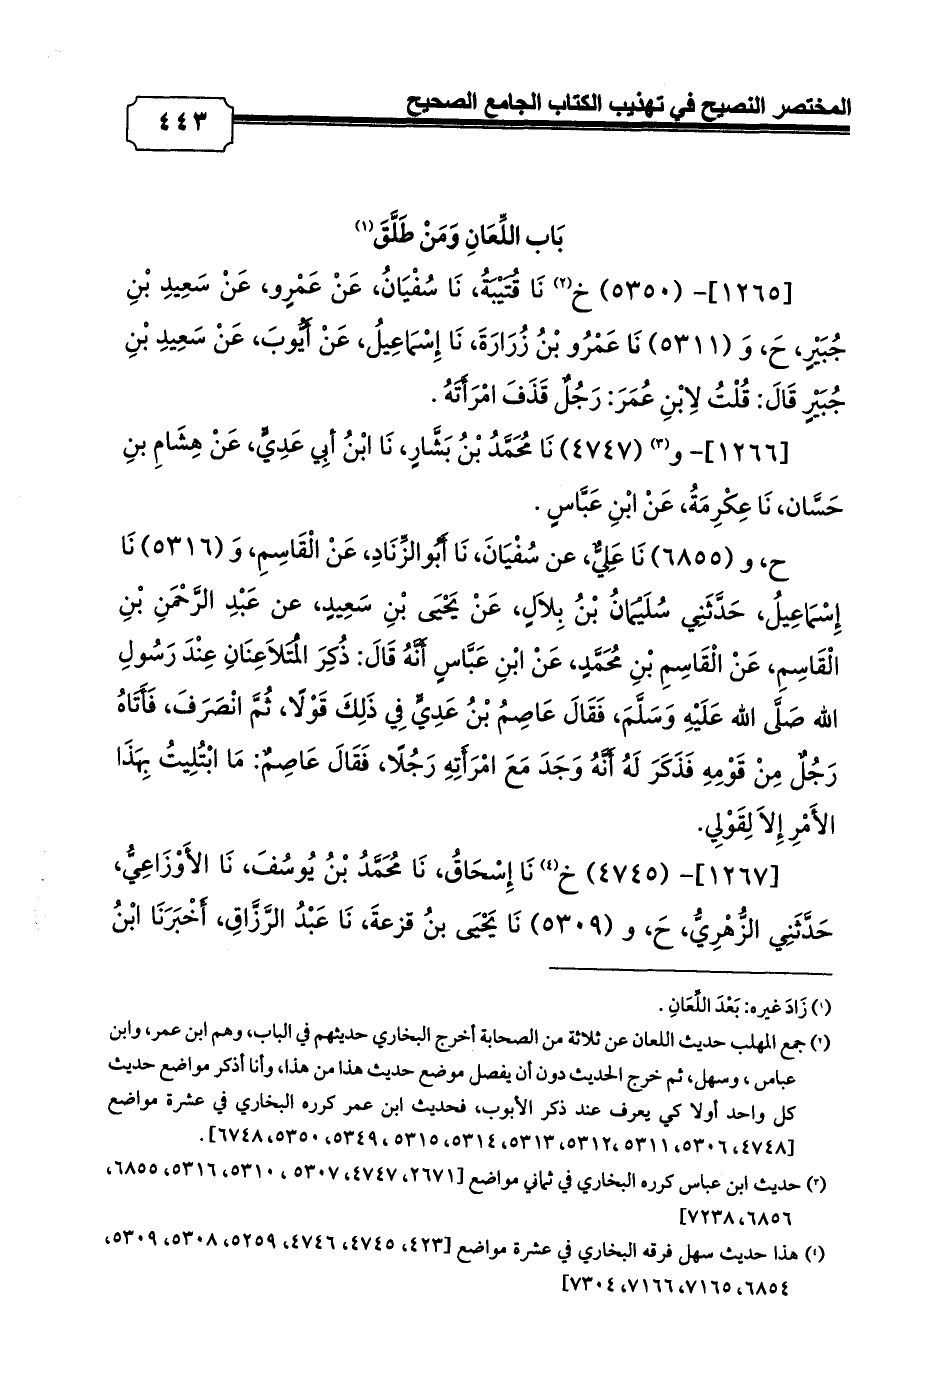 المختصر النصيح في تهذيب الكتاب الجامع الصحيح
٤٤٣
بَاب اللِّعَانِ وَمَنْ طَلَّقَ(١)
[١٢٦٥]- (٥٣٥٠) خ(٢) نَا قُتَيْبَةُ، نَا سُفْيَانُ، عَنْ عَمْرٍو، عَنْ سَعِيدِ بْنِ
جُبَيْرٍ، حَ، وَ (٥٣١١) نَا عَمْرُو بْنُ زُرَارَةَ، نَا إِسْمَاعِيلُ، عَنْ أَيُّوبَ، عَنْ سَعِيدِ بْنِ
جُبَيْرٍ قَالَ: قُلْتُ لِابْنِ عُمَرَ: رَجُلٌ قَذَفَ امْرَأَتَهُ.
[١٢٦٦]- و(٣) (٤٧٤٧) نَا مُحَمَّدُ بْنُ بَشَّارٍ، نَا ابْنُ أبِي عَدِيٍّ، عَنْ هِشَامِ بنِ
حَسَّان، نَا عِكْرِمَةُ، عَنْ ابْنِ عَبَّاسٍ.
ح، و (٦٨٥٥) نَا عَلِيٌّ، عن سُفْيَانَ، نَا أَبُوالزِّنَادِ، عَنْ الْقَاسِمِ، وَ (٥٣١٦) نَا
إِسْمَاعِيلُ، حَدَّثَنِي سُلَيْمَانُ بْنُ بِلاَلٍ، عَنْ يَحْيَى بْنِ سَعِيدٍ، عن عَبْدِ الرَّحْمَنِ بْنِ
الْقَاسِمِ، عَنْ الْقَاسِمِ بْنِ مُحَمَّدٍ، عَنْ ابْنِ عَبَّاسٍ أَنَّهُ قَالَ: ذُكِرَ الْمُتَلَاعِنَانِ عِنْدَ رَسُولِ
الله صَلَّى الله عَلَيْهِ وَسَلَّمَ، فَقَالَ عَاصِمُ بْنُ عَدِيٍّ فِي ذَلِكَ قَوْلًا، ثُمَّ انْصَرَفَ، فَأَتَاهُ
رَجُلٌ مِنْ قَوْمِهِ فَذَكَرَ لَهُ أَنَّهُ وَجَدَ مَعَ امْرَأَتِهِ رَجُلًا، فَقَالَ عَاصِمٌ: مَا ابْتُلِيتُ بِهَذَا
الأَمْرِ إِلاَ لِقَوْلِي.
[١٢٦٧]- (٤٧٤٥) خ(٤) نَا إِسْحَاقُ، نَا مُحَمَّدُ بْنُ يُوسُفَ، نَا الأَوْزَاعِيُّ،
حَدَّثَنِي الزُّهْرِيُّ، حَ، و (٥٣٠٩) نَا يَحْيَى بنُ قزعةَ، نَا عَبْدُ الرَّزَّاقِ، أَخْبَرَنَا ابْنُ
(١) زَادَ غيره: بَعْدَ اللِّعَانِ.
(٢) جمع المهلب حديث اللعان عن ثلاثة من الصحابة أخرج البخاري حديثهم في الباب، وهم ابن عمر، وابن
عباس، وسهل، ثم خرج الحديث دون أن يفصل موضع حديث هذا من هذا، وأنا أذكر مواضع حديث
كل واحد أولا كي يعرف عند ذكر الأبوب، فحديث ابن عمر كرره البخاري في عشرة مواضع
[٤٧٤٨، ٥٣٠٦، ٥٣١١، ٥٣١٢، ٥٣١٣، ٥٣١٤، ٥٣١٥، ٥٣٤٩، ٥٣٥٠، ٦٧٤٨].
(٣) حديث ابن عباس كرره البخاري في ثماني مواضع [٢٦٧١، ٤٧٤٧، ٥٣٠٧، ٥٣١٠، ٥٣١٦، ٦٨٥٥،
٦٨٥٦، ٧٢٣٨]
(٤) هذا حديث سهل فرقه البخاري في عشرة مواضع [٤٢٣، ٤٧٤٥، ٤٧٤٦، ٥٢٥٩، ٥٣٠٨، ٥٣٠٩،
٦٨٥٤، ٧١٦٥، ٧١٦٦، ٧٣٠٤]